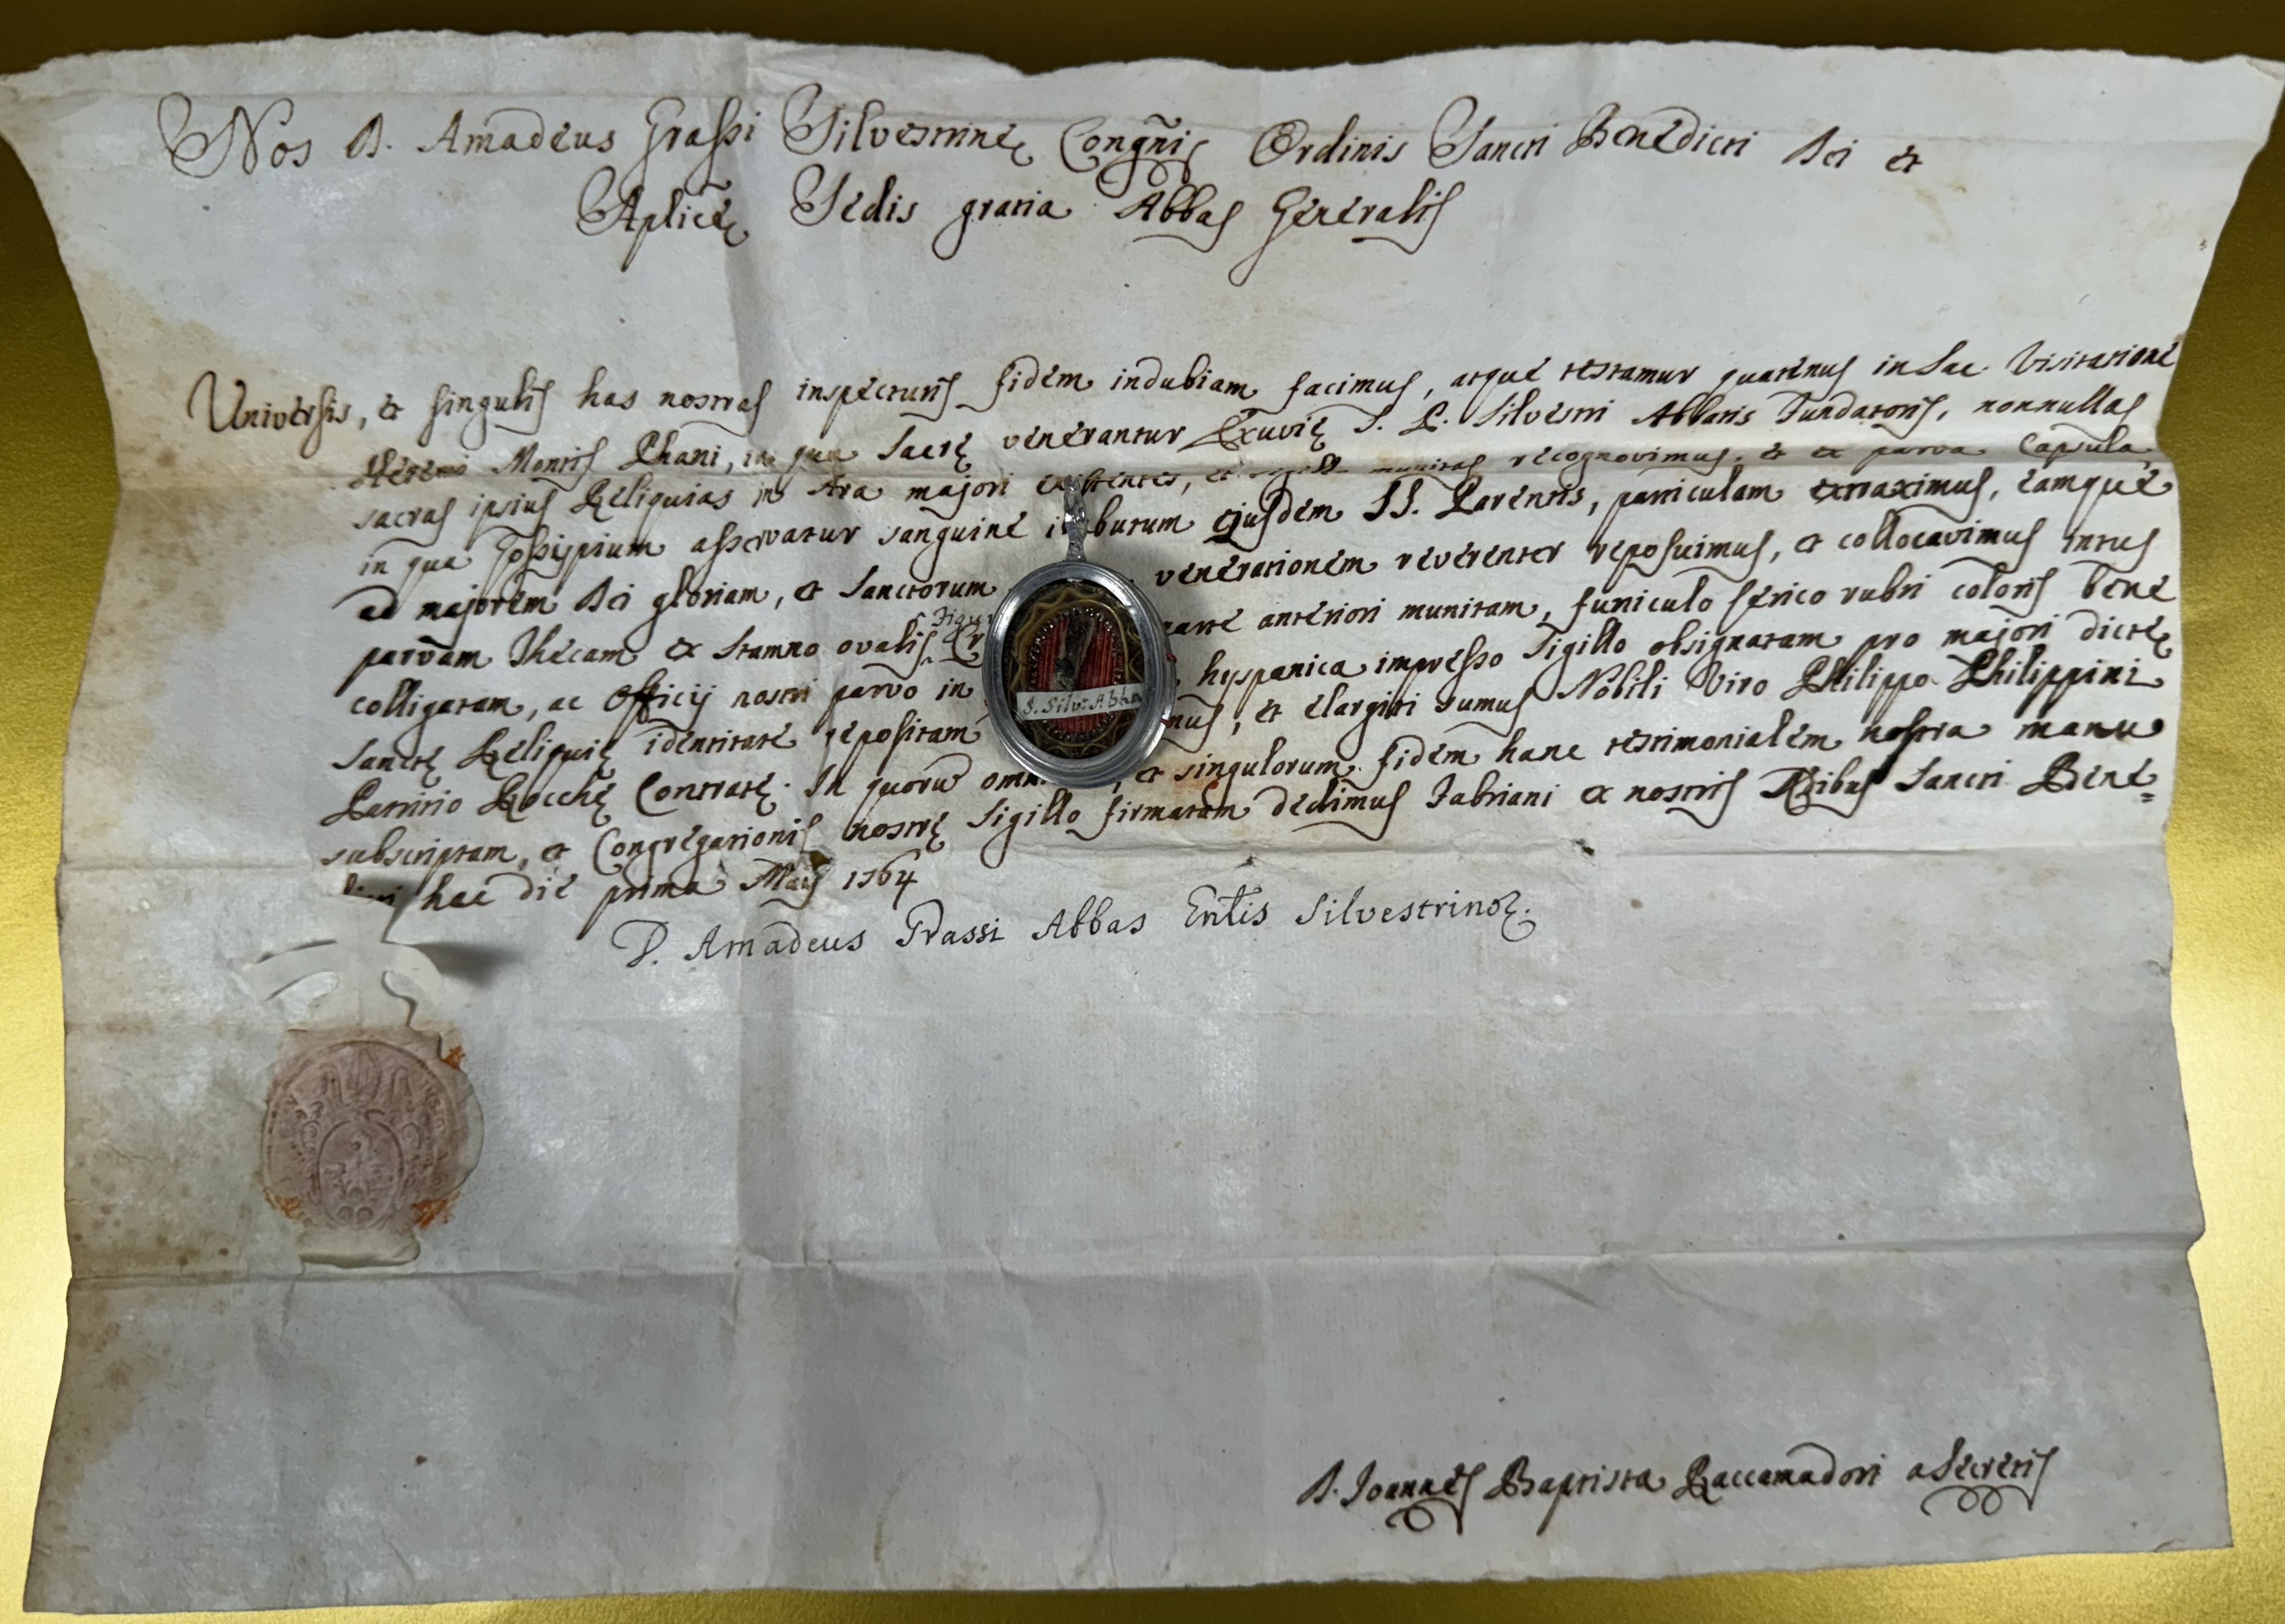 Nos D. Amadeus Grassi Silvestrinę Congñis Ordinis Sancti Benedicti Dei et
Aplicę Sedis gratia Abbas Generalis
Universis, et singulis has nostras inspecturis fidem indubiam facimus, atque testamur quatenus in Sac. Visitatione
Montis Phani, in qua Sacrę venerantur Exuvię S. P. Silvestri Abbatis Fundatoris, nonnullas
sacras ipsius Reliquias in Ara majori existentes, et sigillo munitas recognovimus, et ex parva Capsula
in qua Gossypium asservatur sanguine imbutum ejusdem SS. Parentis, particulam extraximus, eamque
ad majorem Dei gloriam, et Sanctorum venerationem reverenter reposuimus, et collocavimus intus
parvam Thecam ex stamno ovalis Figur anteriori munitam, funiculo serico rubri coloris bene
colligatam, ac Officij nostri parvo in hyspanica impresso Sigillo obsignatam pro majori dictę
Sanctę Reliquię identitate repositam et elargiti sumus Nobili Viro Philippo Philippini
Patritio Rocchę Contratę. In quorũ et singulorum fidem hanc testimonialem nostra manu
subscriptam, et Congregationis nostrę Sigillo firmatam dedimus Fabriani ex nostris Ædibus Sancti Bene=
hac die prima Maij 1764
D. Amadeus Grassi Abbas Silvestrinoꝝ.
S. Silv: Abba
D. Joannes Baptista Raccamadori a Secretis